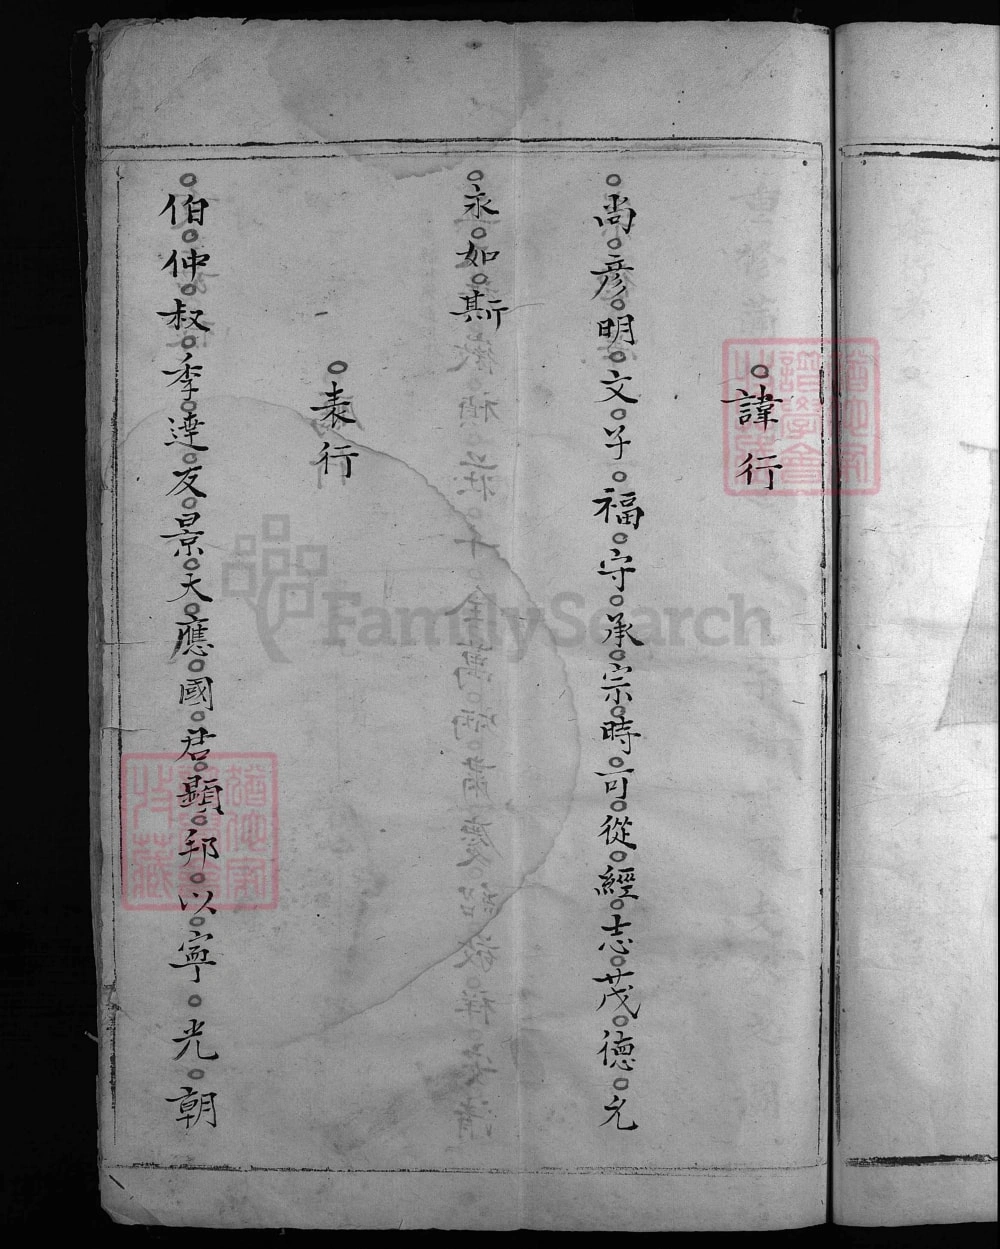 諱行
尚彦明文孚福守承宗時可從經志茂德允
永如斯
表行
伯仲叔季達友景大應國君顯邦以寧光朝
FamilySearch